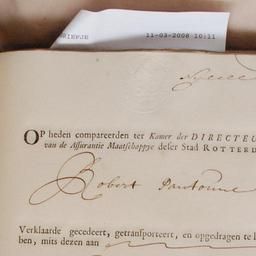 RIEFJE 11-03-2008 10:11
OP heden compareerden ter Kamer der DIRECTEU
van de Assurantie Maatschappye deser Stad ROTTERD
Robert
Verklaarde gecedeert, getransporteert, en opgedragen te
ben, mits dezen aan